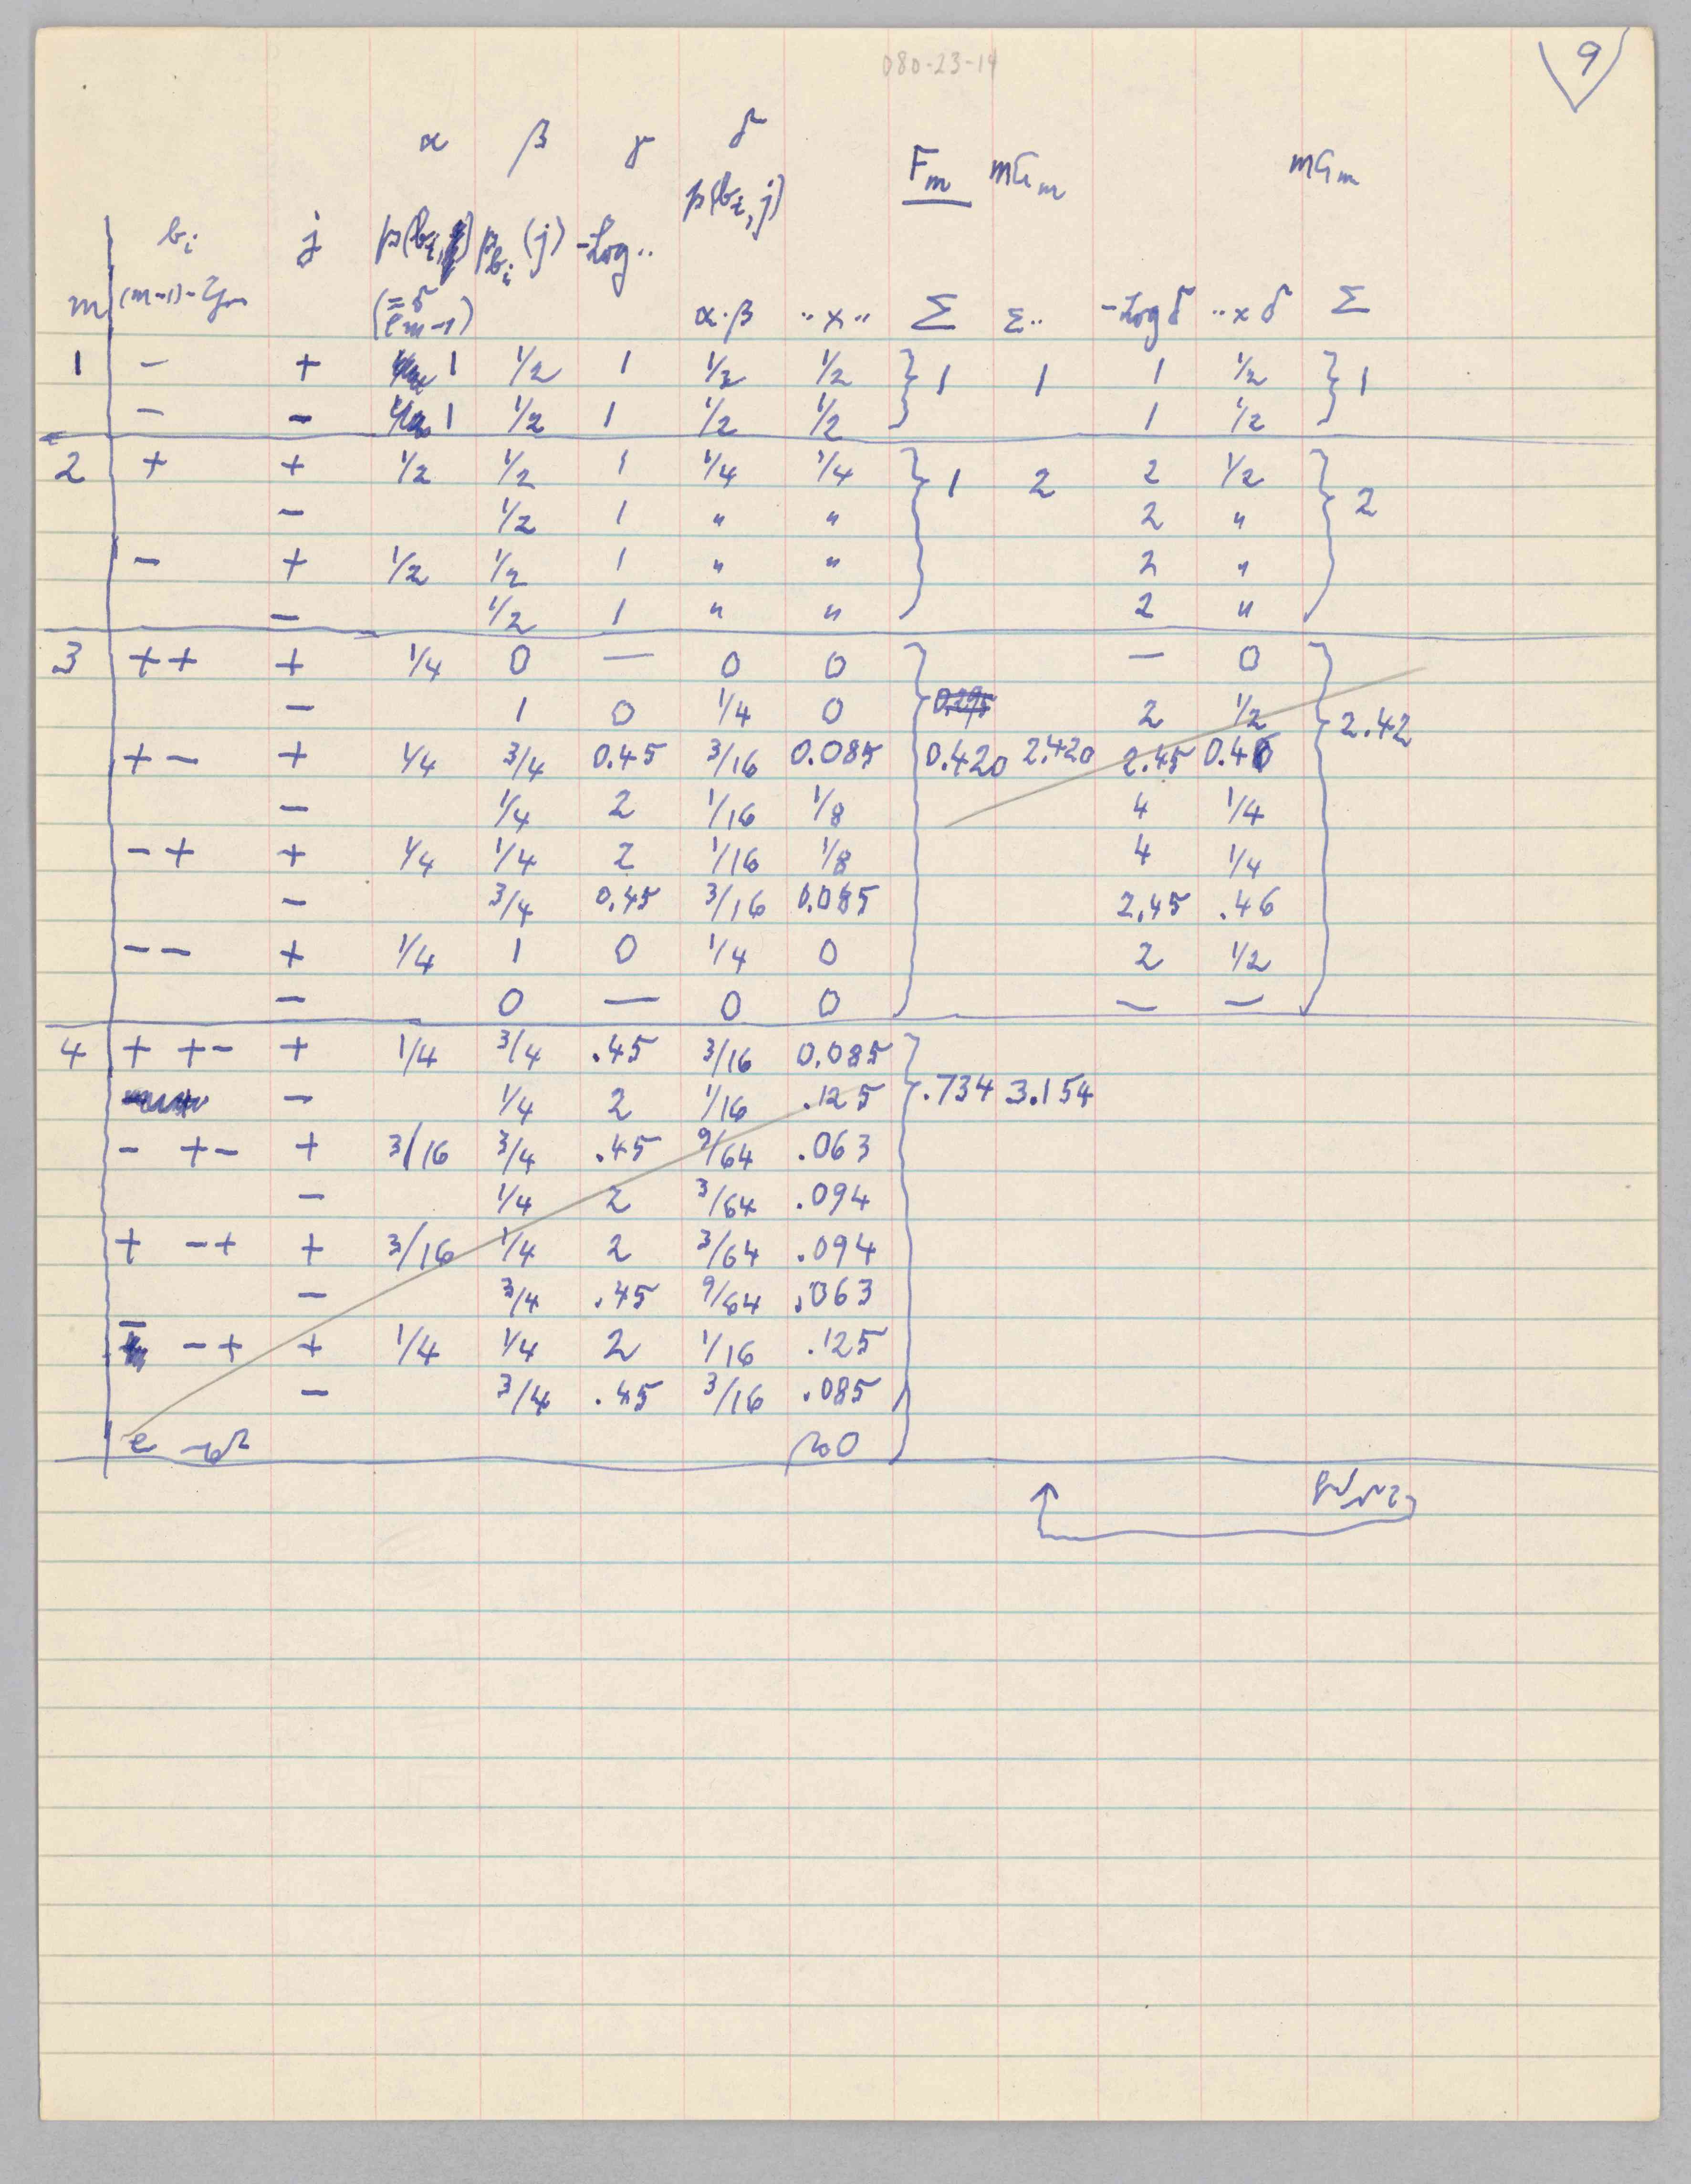 080-23-19
9
α β γ δ
F_m mG_m mG_m
p(b_i, j)
b_i j p(b_i) p_{b_i}(j) -Log..
m (m-1)- (= δ m-1) α·β ..×.. Σ Σ.. -Log δ ..×δ Σ
1 - + 1 1/2 1 1/2 1/2 } 1 1 1 1/2 } 1
- - 1 1/2 1 1/2 1/2 1 1/2
2 + + 1/2 1/2 1 1/4 1/4 } 1 2 2 1/2 } 2
- 1/2 1 " " 2 "
- + 1/2 1/2 1 " " 2 "
- 1/2 1 " " 2 "
3 ++ + 1/4 0 — 0 0 — 0
- 1 0 1/4 0 0.295 2 1/2 } 2.42
+- + 1/4 3/4 0.45 3/16 0.085 } 0.420 2.420 2.45 0.46
- 1/4 2 1/16 1/8 4 1/4
-+ + 1/4 1/4 2 1/16 1/8 4 1/4
- 3/4 0.45 3/16 0.085 2.45 .46
-- + 1/4 1 0 1/4 0 2 1/2
- 0 — 0 0 — —
4 + +- + 1/4 3/4 .45 3/16 0.085
- 1/4 2 1/16 .125 } .734 3.154
- +- + 3/16 3/4 .45 9/64 .063
- 1/4 2 3/64 .094
+ -+ + 3/16 1/4 2 3/64 .094
- 3/4 .45 9/64 .063
- -+ + 1/4 1/4 2 1/16 .125
- 3/4 .45 3/16 .085
0